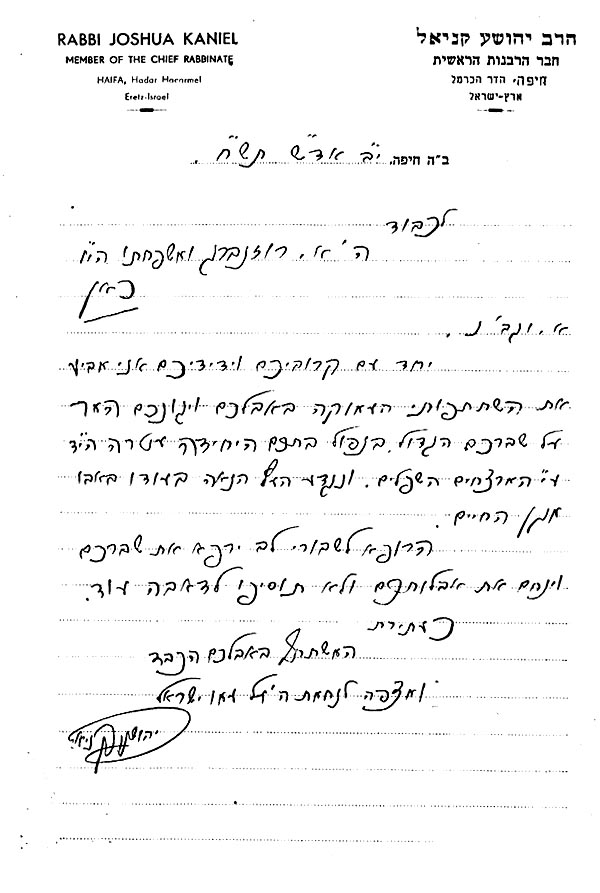 RABBI JOSHUA KANIEL
MEMBER OF THE CHIEF RABBINATE
HAIFA, Hadar Hacarmel
Eretz-Israel
הרב יהושע קניאל
חבר הרבנות הראשית
חיפה, הדר הכרמל
ארץ-ישראל
ב"ה חיפה, י"ב אד"ש תש"ח
לכבוד
ה' א. רוזנברג ומשפחתו הי"ו
כאן
א. ונב' נ.
יחד עם קרוביכם וידידיכם אני מביע
את השתתפותי העמוקה באבלכם ויגונכם המר
על שברכם הגדול בנפול בתכם היחידה עטרה הי"ד
ע"י המרצחים השפלים. ונגדע העץ הנאה בעודו באבו
מגן החיים.
הרופא לשבורי לב ירפא את שברכם
וינחם את אבלותכם ולא תוסיפו לדאבה עוד.
כעתירת
המשתתף באבלכם הכבד
ומצפה לנחמת ה' על עמו ישראל
יהושע קניאל